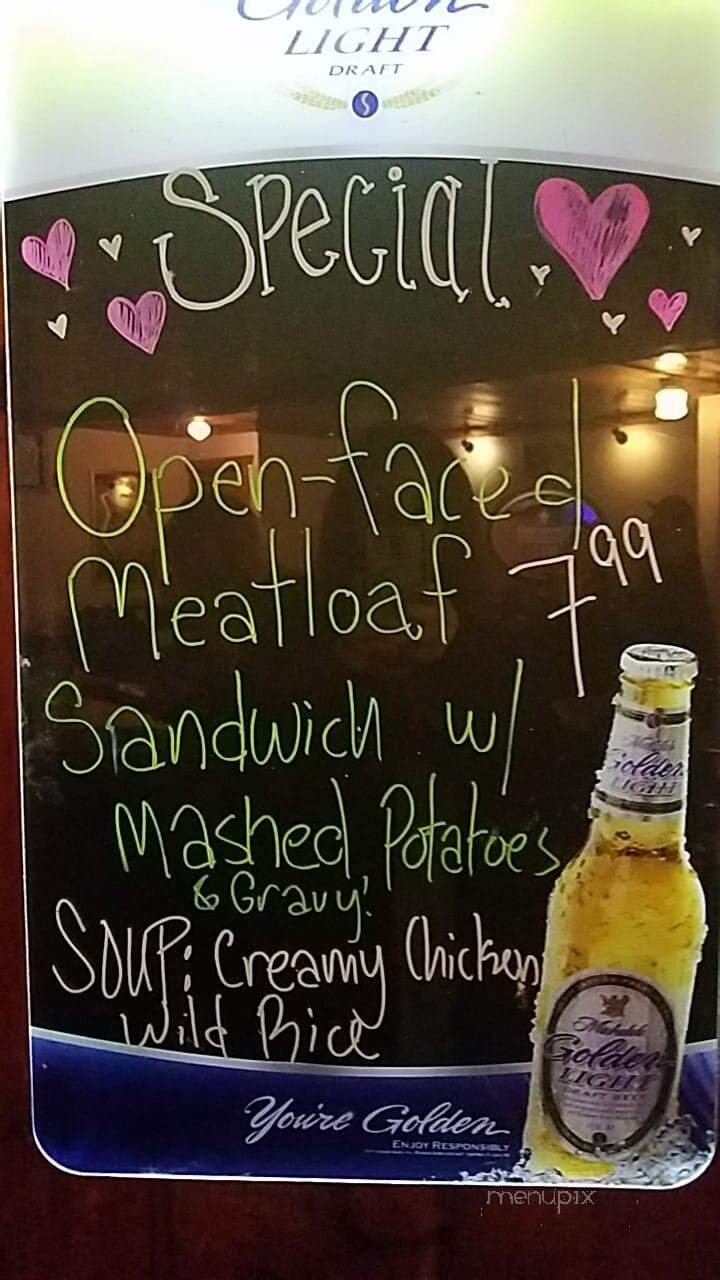 Golden
LIGHT
DRAFT
Special
Open-faced
Meatloaf 7.99
Sandwich w/
Mashed Potatoes
& Gravy!
SOUP: Creamy Chicken
Wild Rice
Michelob
Golden
LIGHT
Michelob
Golden
LIGHT
DRAFT BEER
You're Golden
ENJOY RESPONSIBLY
menupix